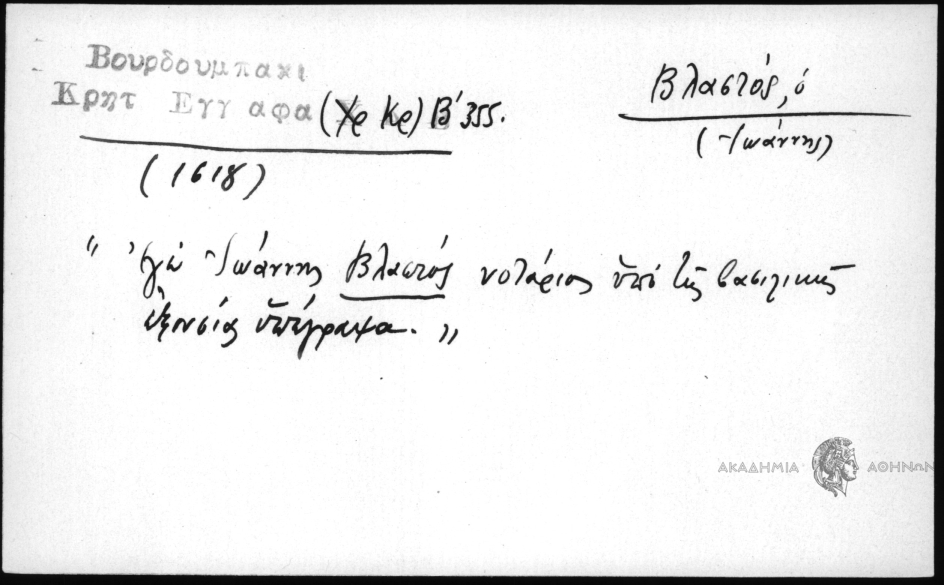 Βουρδουμπακι
Κρητ Εγγραφα (Χρ Κρ) Β' 355.
(1618)
Βλαστός, ὁ
(Ἰωάννης)
" Ἐγὼ Ἰωάννης Βλαστός νοτάριος ὑπὸ τῆς βασιλικῆς
ἐξουσίας ὑπέγραψα. "
ΑΚΑΔΗΜΙΑ ΑΘΗΝΩΝ